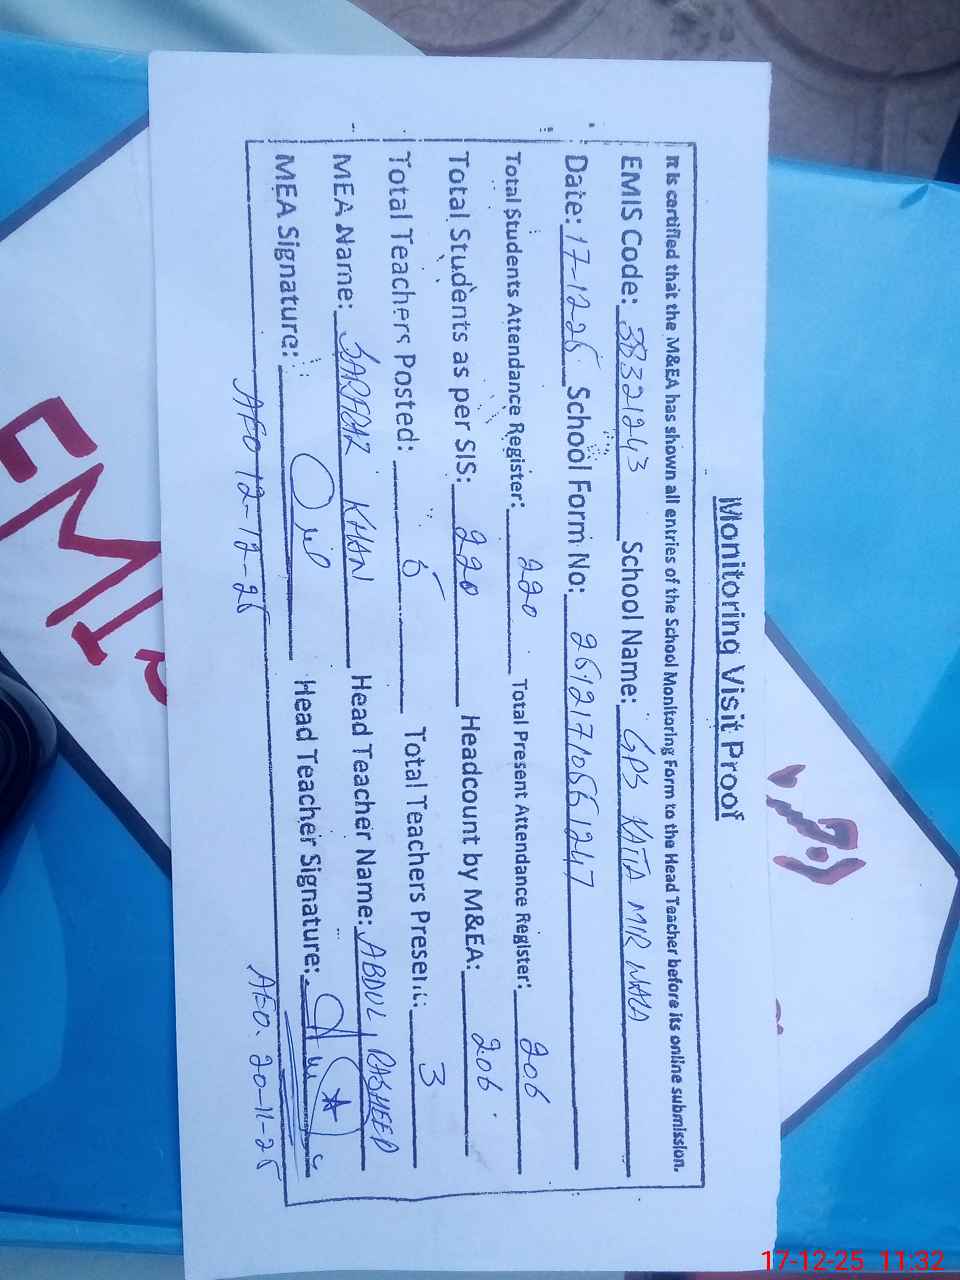 Monitoring Visit Proof
It is certified that the M&EA has shown all entries of the School Monitoring Form to the Head Teacher before its online submission.
EMIS Code: 38321243 School Name: GPS KATTA MIR WALA
Date: 17-12-25 School Form No: 261217105661247
Total Students Attendance Register: 220 Total Present Attendance Register: 206
Total Students as per SIS: 220 Headcount by M&EA: 206
Total Teachers Posted: 5 Total Teachers Present: 3
MEA Name: SARFRAZ KHAN Head Teacher Name: ABDUL RASHEED
MEA Signature: Head Teacher Signature:
AEO 12-12-25 AEO. 20-11-25
EMIS
17-12-25 11:32